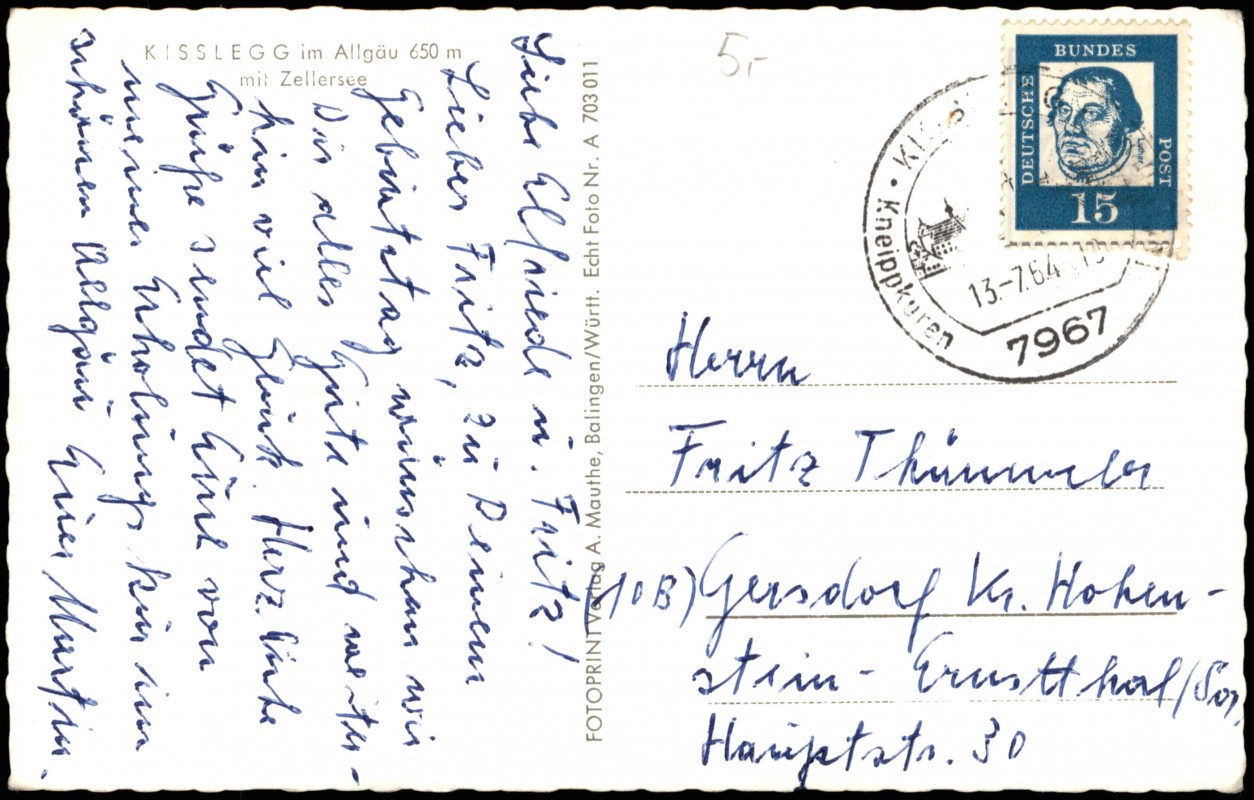 KISSLEGG im Allgäu 650 m
mit Zellersee
Liebe Elfriede u. Fritz!
Lieber Fritz, zu Deinem
Geburtstag wünschen wir
Dir alles Gute und weiter-
hin viel Glück. Herzliche
Grüße sendet Euch von
meiner Erholungskur im
schönen Allgäu Euer Martin.
FOTOPRINT Verlag A. Mauthe, Balingen/Württ. Echt Foto Nr. A 703011
5,-
DEUTSCHE
BUNDES
POST
Luther
15
Kneippkuren
13.-7.64
7967
Herrn
Fritz Thümmler
(10B) Gersdorf Kr. Hohen-
stein-Ernstthal/Sa.
Hauptstr. 30